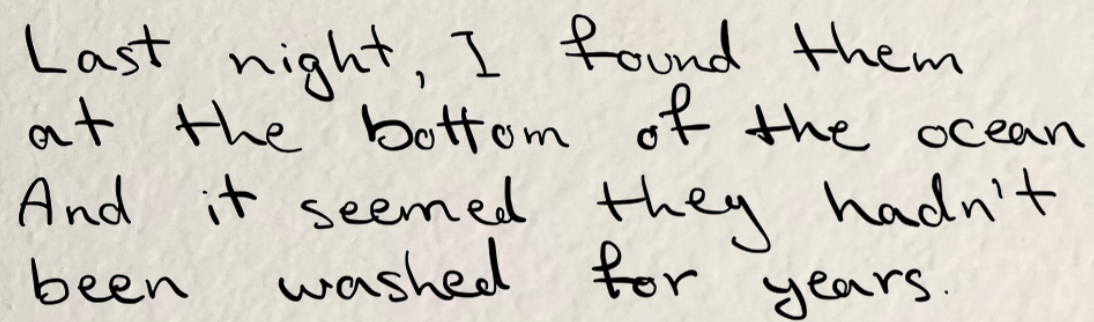 Last night, I found them
at the bottom of the ocean
And it seemed they hadn't
been washed for years.